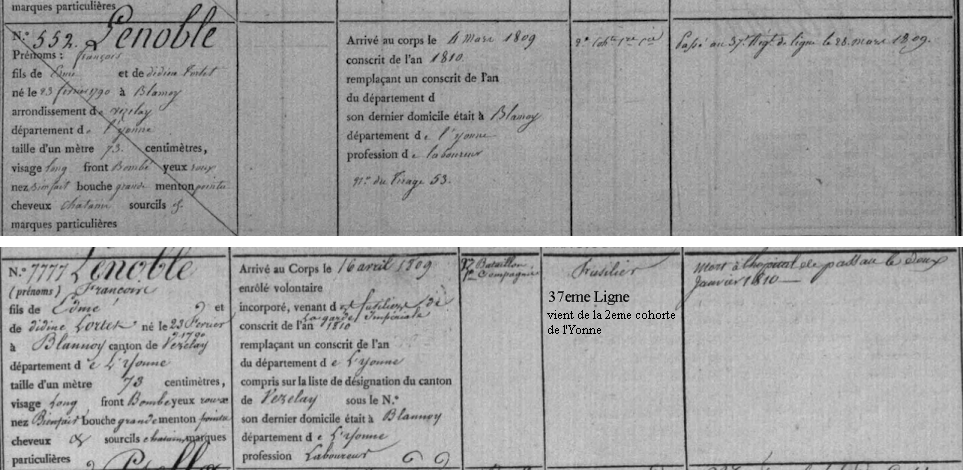 marques particulières
N.° 552. Lenoble
Prénoms : françois
fils de Edmé et de didine
né le 23 février 1790 à Blamoy
arrondissement de vezelay
département de l'yonne
taille d'un mètre 73. centimètres,
visage long front Bombé yeux roux
nez Bienfait bouche grande menton pointu
cheveux chatains sourcils &.
marques particulières
Arrivé au corps le 4 mars 1809
conscrit de l'an 1810.
remplaçant un conscrit de l'an
du département d
son dernier domicile était à Blamoy
département de l'yonne
profession de laboureur
n.° du tirage 53.
2e Cohte 1ere cie
Passé au 37e Régt de ligne le 28. mars 1809.
N.° 7777 Lenoble
(prénoms) Francois
fils de Edmé et
de didine né le 23 Fevrier
1790
à Blannoy canton de Vezelay
département de L'Yonne
taille d'un mètre 73 centimètres,
visage Long front Bombé yeux roux
nez Bienfait bouche grande menton pointu
cheveux & sourcils chatain, marques
particulières
Arrivé au Corps le 16 avril 1809
enrôlé volontaire
incorporé, venant des fusiliers de
La garde Impériale
conscrit de l'an 1810
remplaçant un conscrit de l'an
du département de L'Yonne
compris sur la liste de désignation du canton
de Vezelay sous le N.°
son dernier domicile était à Blannoy
département de L'Yonne
profession Laboureur
Bataillon
1re Compagnie
Fusilier
37eme Ligne
vient de la 2eme cohorte
de l'Yonne
mort à l'hopital de passau le Douze
Janvier 1810